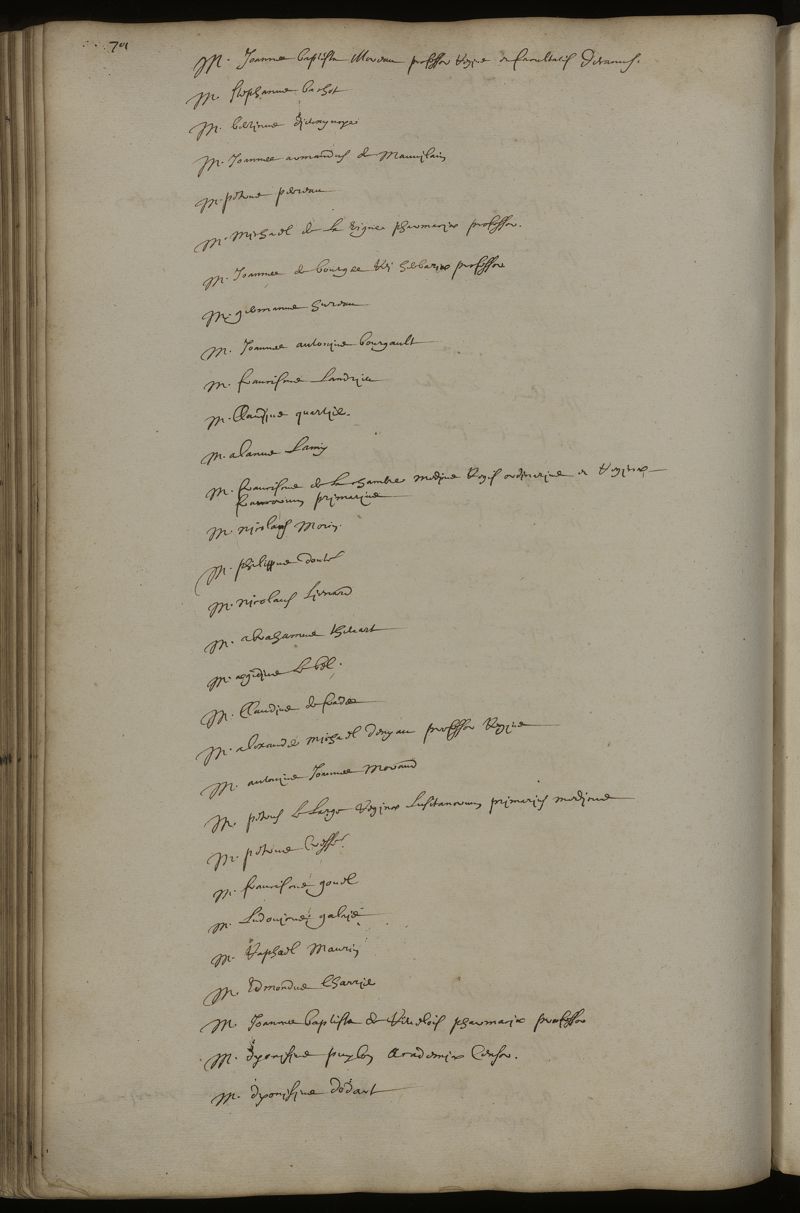 701
M. Joannes baptista Moreau professor Regius et facultatis Decanus.
M. Stephanus bachot
M. bertinus Dieuxyvoye
M. Joannes armandus de Mauvilain
M. petrus perreau
M. Michael de la vigne pharmaciæ professor.
M. Joannes de bourges rei herbariæ professor
M. germanus hureau
M. Joannes antonius bourgault
M. franciscus Landrieu
M. Claudius quartier.
M. alanus Lamy
M. franciscus de la chambre medicus Regis ordinarius et Reginæ
francorum primarius
M. nicolaus Morin.
M. philippus douté
M. nicolaus Lienard
M. abrahamus thevart
M. ægidius le bel.
M. Claudius de frades
M. alexander Michael denyau professor Regius
M. antonius Joannes Morand
M. petrus le Large Reginæ Lusitanorum primarius medicus
M. petrus Cressé.
M. franciscus gouel
M. Ludovicus galais
M. Raphael Maurin
M. Edmondus Charrie
M. Joannes baptista de pharmaciæ professor
M. dyonisius puylon academiæ Censor.
M. dyonisius dodart